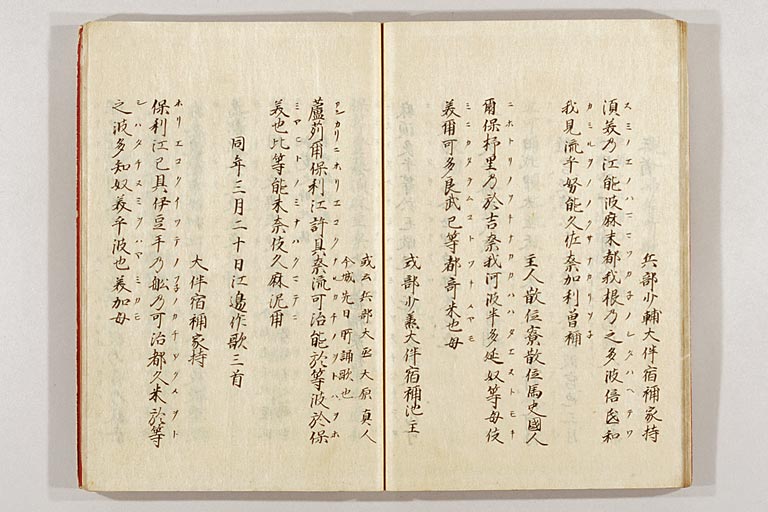 兵部少輔大伴宿祢家持
スミノエノハママツカネノシタハヘテワ
須美乃江能波麻末都我根乃之多波倍弖和
カミルヲノノクサナカリソネ
我見流乎努能久佐奈加利曽祢
主人散位寮散位馬史國人
ニホトリノオキナカカハハタエヌトモキ
爾保杼里乃於吉奈我河波半多延奴等母伎
ミニカタラムコトツキメヤモ
美爾可多良武己等都奇米也母
式部少丞大伴宿祢池主
或云兵部大丞大原真人
今城先日所誦歌也
アシカリニホリエコクナルカチノオトハオホ
蘆苅爾保利江許具奈流可治能於等波於保
ミヤヒトノミナキクマテニ
美也比等能未奈伎久麻泥爾
同年三月二十日江邊作歌三首
大伴宿祢家持
ホリエコクイツテノフネノカチツクメオト
保利江己具伊豆手乃舩乃可治都久米於等
シハタチヌミヲハヤミカモ
之波多知奴美乎波也美加母